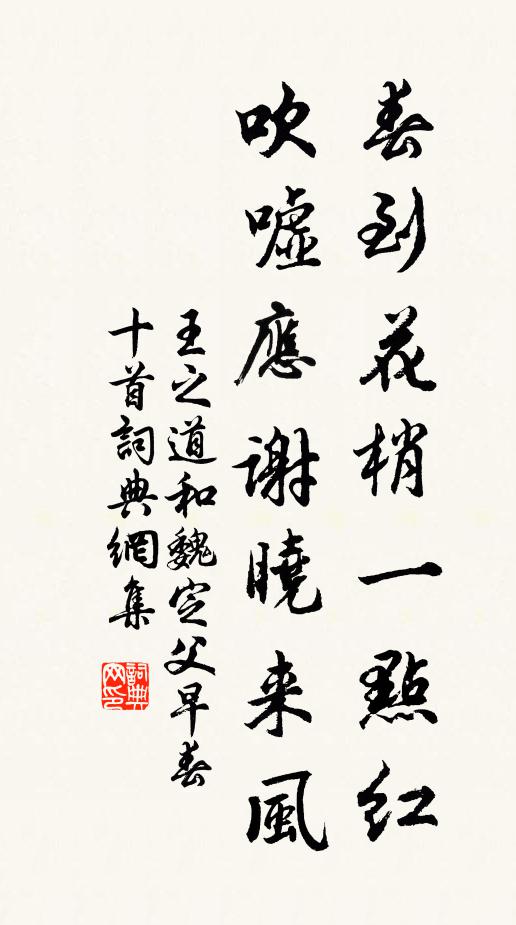 春到花梢一點紅
吹噓應謝曉来風
王之道和魏定父早春
十首詞典網集
詞典網印